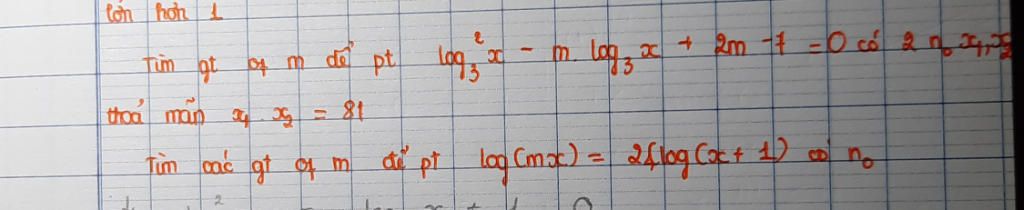 lớn hơn 1
Tìm gt of m để pt log₃²x - m. log₃x + 2m - 7 = 0 có 2 n₀ x₁, x₂
thoả mãn x₁ . x₂ = 81
Tìm các gt of m để pt log(mx) = 2log(x + 1) có n₀